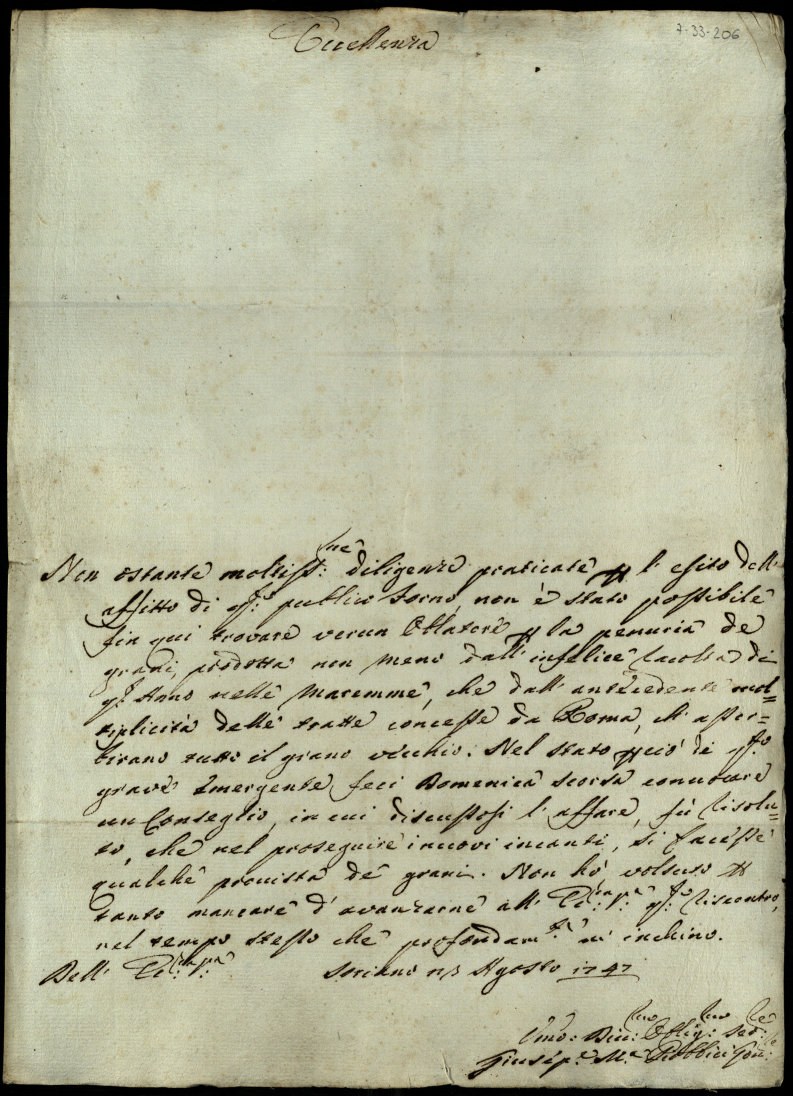 7-33-206
Eccellenza
Non ostante moltiss:me diligenze praticate p l'esito dell'
affitto di qs:o publico forno, non è stato possibile
fin qui trovare verun Oblatore p la penuria de
grani, prodotta non meno dall'infelice raccolta di
qs:o Anno nelle Maremme, che dall'antecedente mol=
tiplicità delle tratte concesse da Roma, ch'asser=
tirano tutto il grano vecchio. Nel stato p ciò di qs:to
grave Emergente feci Domenica scorsa convocare
un Conseglio, in cui discussosi l'affare, fù risolu=
to, che nel proseguire i nuovi incanti, si facesse
qualche provista de grani. Non hò volsuto p
tanto mancare d'avanzarne all' riscontro,
nel tempo stesso che profondam:te m'inchino.
Dell' Soriano Agosto 1747
Umo: Oblig:mo
Giusep:e M:a